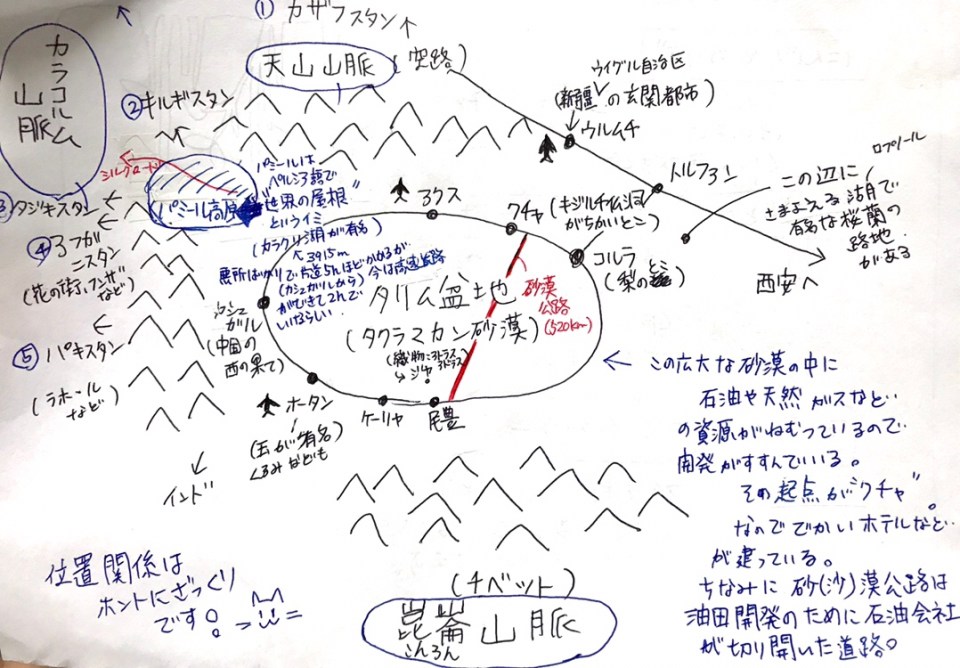 ① カザフスタン↑
天山山脈
(空路)
カラコルム
山脈
② キルギスタン
ウイグル自治区
(新疆の玄関都市)
ウルムチ
トルファン
ロプノール
この辺に
さまよえる湖で
有名な桜蘭の
路地
がある
西安へ
シルクロード
パミール高原
パミールは
ペルシア語で
"世界の屋根"
というイミ
(カラクリ湖が有名)
3915m
(カシュガルから)
今は高速道路
ができて2hで
いけるらしい
③ タジキスタン
④ アフガ
ニスタン
など)
⑤ パキスタン
(ラホール
など)
インド
アクス
クチャ
(キジルチイム河
がちかいとこ)
コルラ
カシュ
ガル
(中国の
西の果て)
タリム盆地
(タクラマカン砂漠)
砂漠
公路
(520km)
ホータン
(玉が有名)
くるみなども
ケーリヤ
尾豊
この広大な砂漠の中に
石油や天然ガスなど
の資源がねむっているので
開発がすすんでいる。
その起点が"クチャ"
なのででかいホテルなど
が建っている。
ちなみに砂(沙)漠公路は
油田開発のために石油会社
が切り開いた道路。
(チベット)
崑崙山脈
こんろん
位置関係は
ホントにざっくり
です!